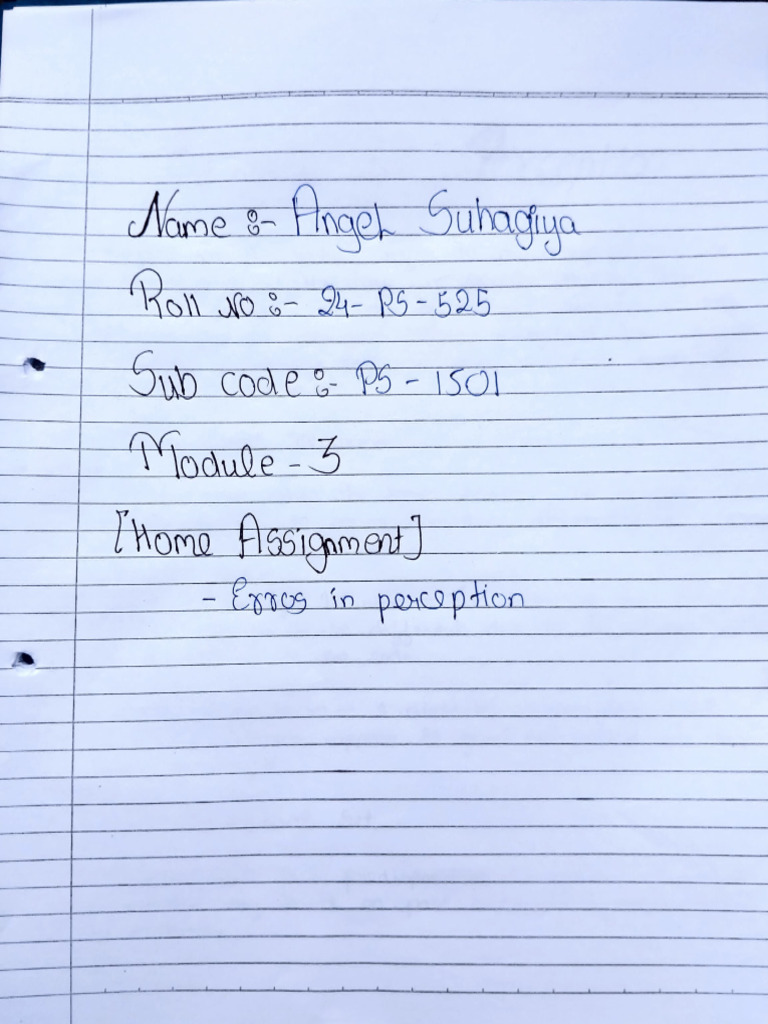 Name :- Angel Suhagiya
Roll No :- 24- PS - 525
Sub code :- PS - 1501
Module - 3
[Home Assignment]
- Erros in perception